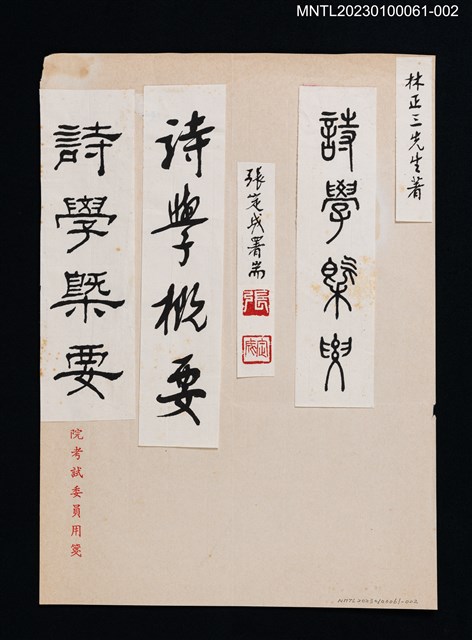 MNTL20230100061-002
林正三先生著
詩學槩要
張定成署耑
張
定成
詩學概要
詩學槩要
院考試委員用箋
MNTL20230100061-002